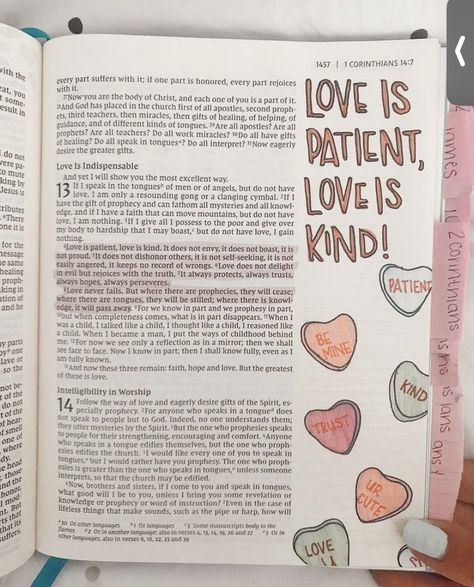 1457 | 1 CORINTHIANS 14:7
every part suffers with it; if one part is honored, every part rejoices
with it.
27Now you are the body of Christ, and each one of you is a part of it.
28And God has placed in the church first of all apostles, second proph-
ets, third teachers, then miracles, then gifts of healing, of helping, of
guidance, and of different kinds of tongues. 29Are all apostles? Are all
prophets? Are all teachers? Do all work miracles? 30Do all have gifts
of healing? Do all speak in tongues? Do all interpret? 31Now eagerly
desire the greater gifts.
Love Is Indispensable
And yet I will show you the most excellent way.
13 If I speak in the tongues of men or of angels, but do not have
love, I am only a resounding gong or a clanging cymbal. 2If I
have the gift of prophecy and can fathom all mysteries and all knowl-
edge, and if I have a faith that can move mountains, but do not have
love, I am nothing. 3If I give all I possess to the poor and give over
my body to hardship that I may boast, but do not have love, I gain
nothing.
4Love is patient, love is kind. It does not envy, it does not boast, it is
not proud. 5It does not dishonor others, it is not self-seeking, it is not
easily angered, it keeps no record of wrongs. 6Love does not delight
in evil but rejoices with the truth. 7It always protects, always trusts,
always hopes, always perseveres.
8Love never fails. But where there are prophecies, they will cease;
where there are tongues, they will be stilled; where there is knowl-
edge, it will pass away. 9For we know in part and we prophesy in part,
10but when completeness comes, what is in part disappears. 11When I
was a child, I talked like a child, I thought like a child, I reasoned like
a child. When I became a man, I put the ways of childhood behind
me. 12For now we see only a reflection as in a mirror; then we shall
see face to face. Now I know in part; then I shall know fully, even as I
am fully known.
13And now these three remain: faith, hope and love. But the greatest
of these is love.
Intelligibility in Worship
14 Follow the way of love and eagerly desire gifts of the Spirit, es-
pecially prophecy. 2For anyone who speaks in a tongue does
not speak to people but to God. Indeed, no one understands them;
they utter mysteries by the Spirit. 3But the one who prophesies speaks
to people for their strengthening, encouraging and comfort. 4Anyone
who speaks in a tongue edifies themselves, but the one who proph-
esies edifies the church. 5I would like every one of you to speak in
tongues, but I would rather have you prophesy. The one who proph-
esies is greater than the one who speaks in tongues, unless someone
interprets, so that the church may be edified.
6Now, brothers and sisters, if I come to you and speak in tongues,
what good will I be to you, unless I bring you some revelation or
knowledge or prophecy or word of instruction? 7Even in the case of
lifeless things that make sounds, such as the pipe or harp, how will
30 Or other languages 1 Or languages 3 Some manuscripts body to the
flames 2 Or in another language; also in verses 4, 13, 14, 19, 26 and 27 5 Or in
other languages; also in verses 6, 18, 22, 23 and 39
LOVE IS
PATIENT,
LOVE IS
KIND!
PATIENT
BE
MINE
KIND
TRUST
UR
CUTE
LOVE